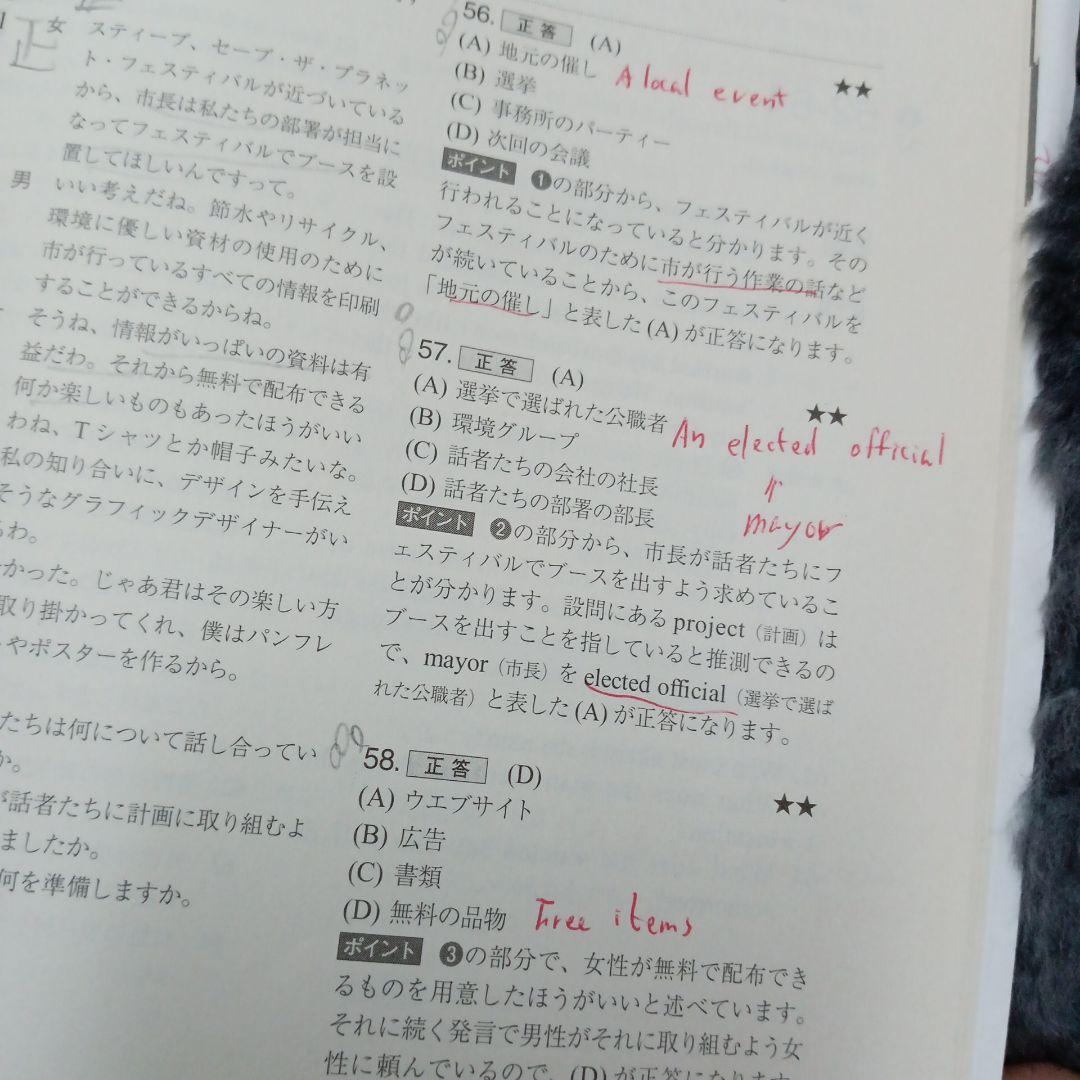 女 スティーブ、セーブ・ザ・プラネッ
ト・フェスティバルが近づいている
から、市長は私たちの部署が担当に
なってフェスティバルでブースを設
置してほしいんですって。
男 いい考えだね。節水やリサイクル、
環境に優しい資材の使用のために
市が行っているすべての情報を印刷
することができるからね。
そうね、情報がいっぱいの資料は有
益だわ。それから無料で配布できる
何か楽しいものもあったほうがいい
わね、Tシャツとか帽子みたいな。
私の知り合いに、デザインを手伝え
そうなグラフィックデザイナーがい
るわ。
かった。じゃあ君はその楽しい方
取り掛かってくれ、僕はパンフレ
やポスターを作るから。
たちは何について話し合ってい
か。
が話者たちに計画に取り組むよ
ましたか。
何を準備しますか。
56. 正答 (A)
★★
(A) 地元の催し A local event
(B) 選挙
(C) 事務所のパーティー
(D) 次回の会議
ポイント ❶の部分から、フェスティバルが近く
行われることになっていると分かります。その
フェスティバルのために市が行う作業の話など
が続いていることから、このフェスティバルを
「地元の催し」と表した(A)が正答になります。
57. 正答 (A)
★★
(A) 選挙で選ばれた公職者 An elected official
(B) 環境グループ
(C) 話者たちの会社の社長
(D) 話者たちの部署の部長
mayor
ポイント ❷の部分から、市長が話者たちにフ
ェスティバルでブースを出すよう求めているこ
とが分かります。設問にあるproject（計画）は
ブースを出すことを指していると推測できるの
で、mayor（市長）をelected official（選挙で選ば
れた公職者）と表した(A)が正答になります。
58. 正答 (D)
★★
(A) ウエブサイト
(B) 広告
(C) 書類
(D) 無料の品物 Free items
ポイント ❸の部分で、女性が無料で配布でき
るものを用意したほうがいいと述べています。
それに続く発言で男性がそれに取り組むよう女
性に頼んでいるので、(D)が正答になります